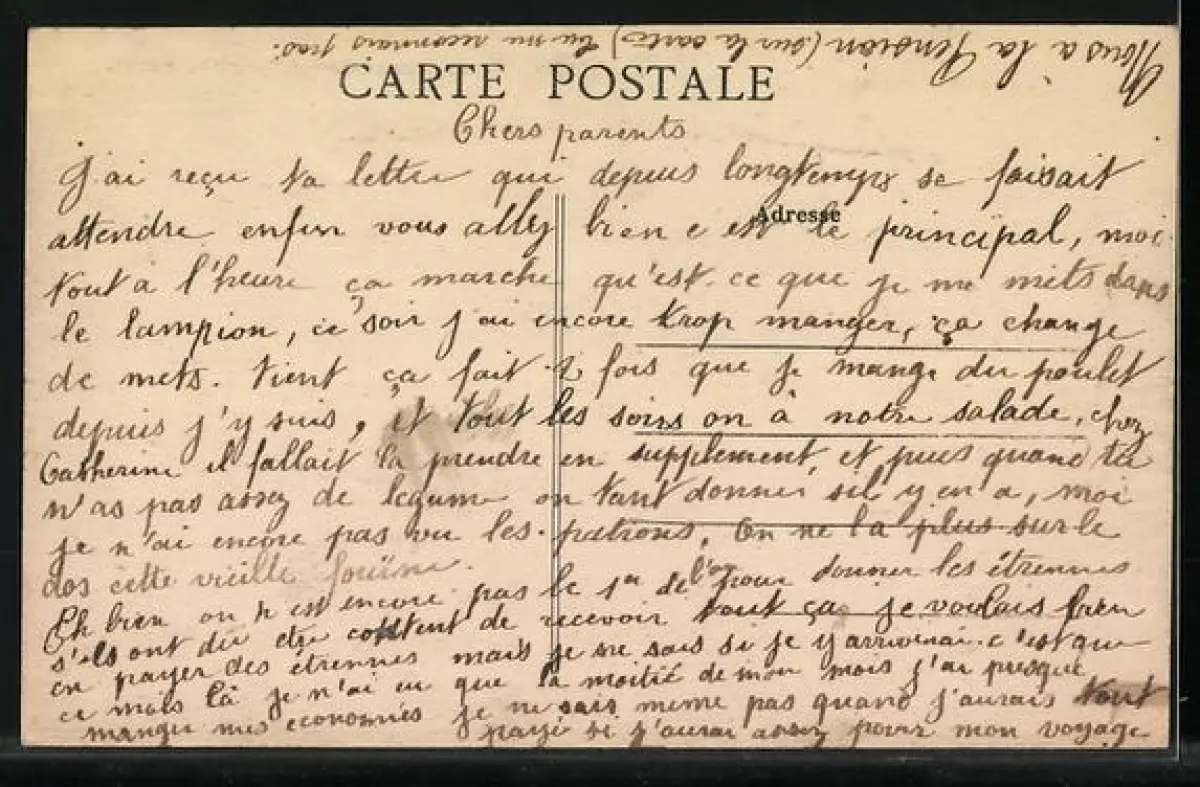 Nous à la Pension (sur la carte) tu me reconnais pas.
CARTE POSTALE
Chers parents
J'ai reçu ta lettre qui depuis longtemps se faisait
Adresse
attendre enfin vous allez bien c est le principal, moi
tout à l'heure ça marche qu'est-ce que je me mets dans
le lampion, ce soir j'ai encore trop manger, ça change
de mets. tient ça fait 2 fois que je mange du poulet
depuis j'y suis, et tout les soirs on à notre salade, chez
Catherine il fallait la prendre en supplement, et puis quand tu
n'as pas assez de legume on t'ant donner sil y en a, moi
je n'ai encore pas vu les patrons, On ne la plus sur le
dos cette vieille fouine.
Eh bien on n est encore pas le 1er de l'an pour donner les étrennes
s'ils ont du etre content de recevoir tout ça je voulais bien
en payer des étrennes mais je ne sais si je y arriverai c'est que
ce mois là je n'ai eu que la moitié de mon mois j'ai presque
manger mes economies je ne sais meme pas quand j'aurais tout
payé si j'aurai assez pour mon voyage